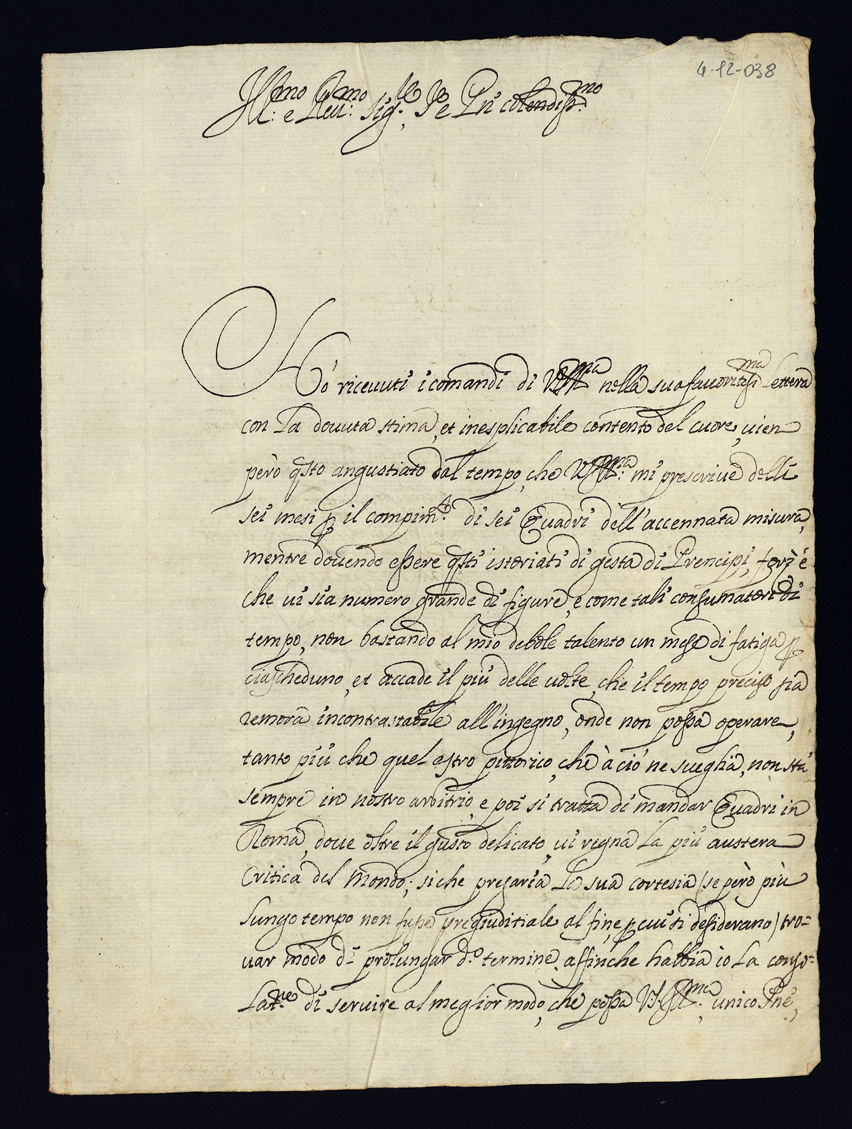 4-12-038
Ill:mo e Reu:mo Sig:re Sig:re e Prñ colendiss:mo
Hò riceuuti i comandi di V.S.Ill:ma nella sua fauoritiss:ma lettera
con la douuta stima, et inesplicabile contento del cuore, uien
però qsto angustiato dal tempo, che V.S.Ill:ma mi prescriue delli
sei mesi p il compim:to di sei Quadri dell'accennata misura,
mentre douendo essere qsti isteriati di gesta di Prencipi, forz'è
che ui sia numero grande di figure, e come tali consumatori di
tempo, non bastando al mio debole talento un mese di fatiga p
ciascheduno, et accade il più delle uolte, che il tempo preciso sia
remora incontrastabile all'ingegno, onde non possa operare,
tanto più che quel astro pittorico, che à ciò ne sueglia, non stà
sempre in nostro arbitrio, e poi si tratta di mandar Quadri in
Roma, doue oltre il gusto delicato, ui regna la più austera
Critica del Mondo; siche pregaria la sua cortesia (se però più
lungo tempo non fusse pregiuditiale al fine, p cui si desiderano) tro=
uar modo di prolungar d:o termine, affinche habbia io la conso=
lat:ne di seruire al meglior modo, che possa V.S.Ill:ma, unico Pñe,